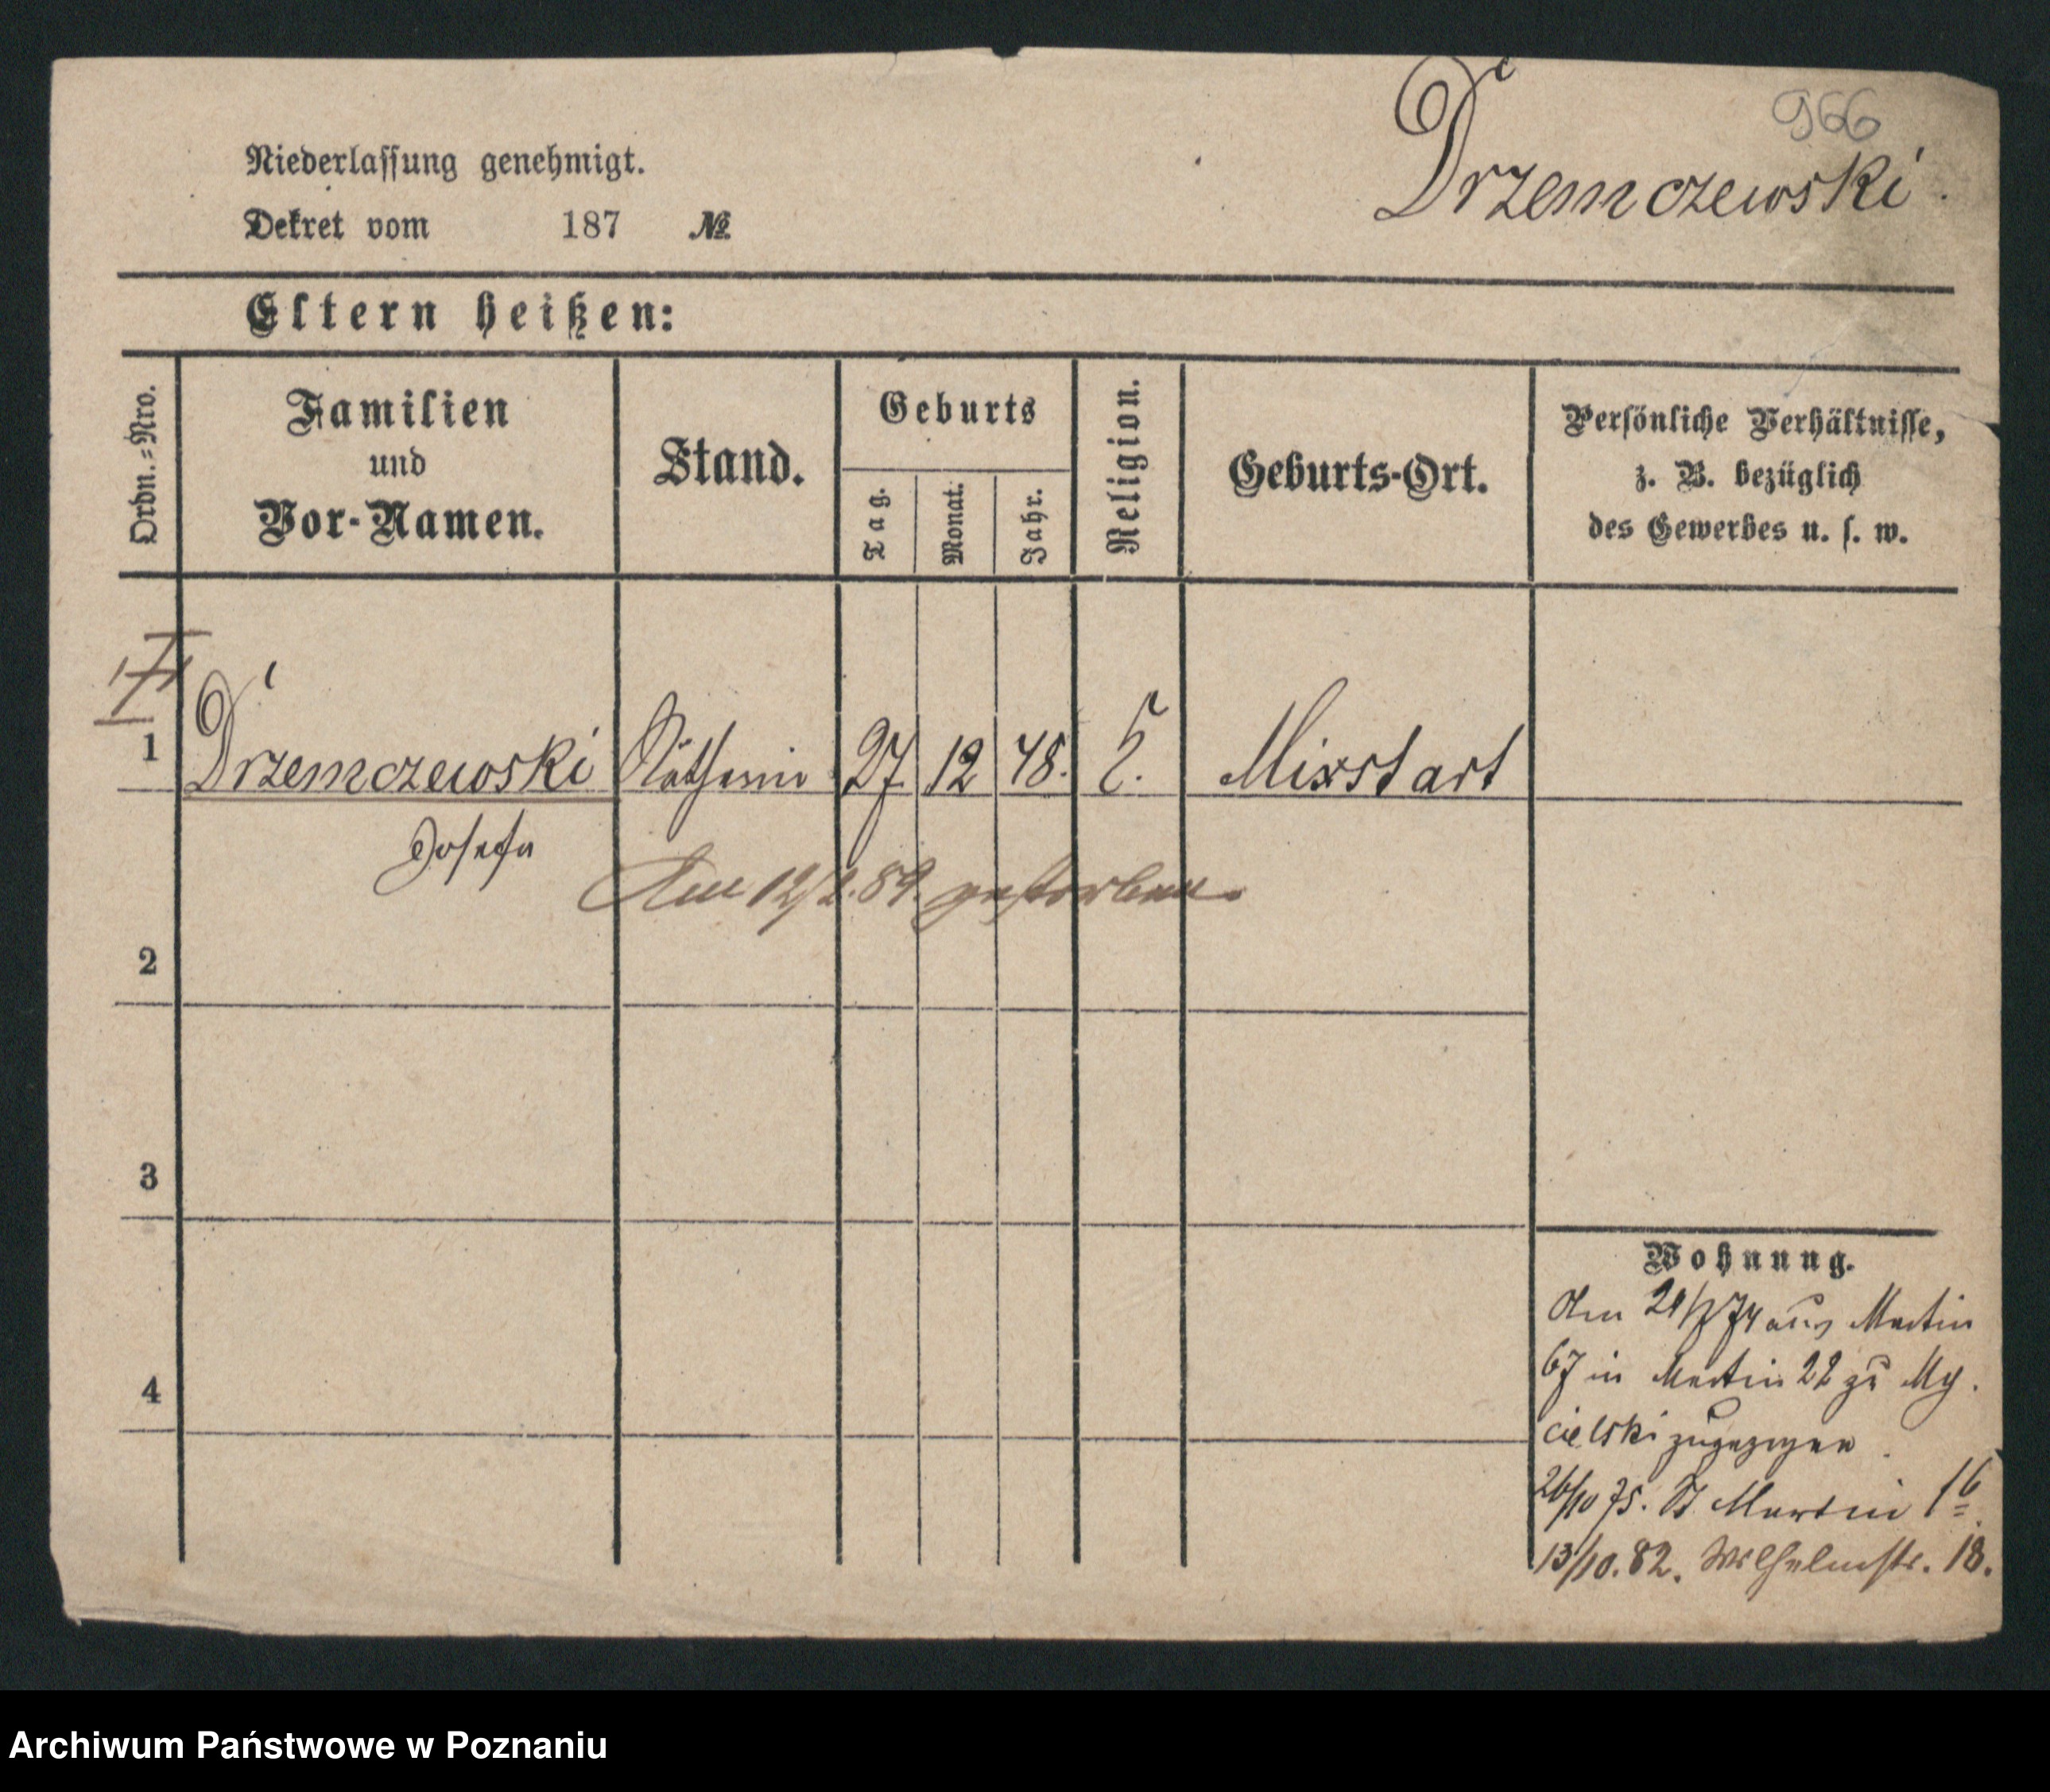 966
Drzemczewski.
Niederlassung genehmigt.
Dekret vom 187 №
Eltern heißen:
Ordn.-Nro.
Familien
und
Vor-Namen.
Stand.
Geburts
Tag.
Monat.
Jahr.
Religion.
Geburts-Ort.
Persönliche Verhältnisse,
z. B. bezüglich
des Gewerbes u. s. w.
1 Drzemczewski Nätherin 27. 12 48. Mixstart
Josefa
Am 12/2. 89. gestorben.
2
3
4
Wohnung.
Am 74 aus Martin
67 in Martin 22 zu My
cielski zugezogen
26/10 75. St Martin 16
13/10. 82. Wilhelmstr. 18.
Archiwum Państwowe w Poznaniu